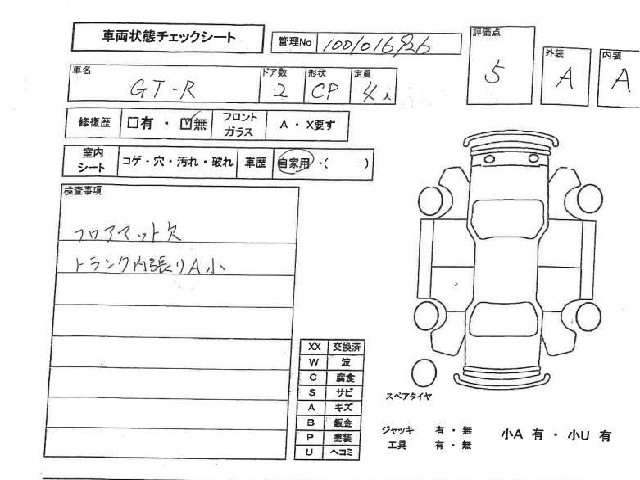 車両状態チェックシート
管理No 1001016926
評価点 5
外装 A
内装 A
車名 GT-R
ドア数 2
形状 CP
定員 4人
修復歴 □有・☑無
フロントガラス A・X要す
室内シート コゲ・穴・汚れ・破れ
車歴 自家用・( )
検査事項
フロアマット欠
トランク内張りA小
XX 交換済
W 波
C 腐食
S サビ
A キズ
B 鈑金
P 塗装
U ヘコミ
スペアタイヤ
ジャッキ 有・無
工具 有・無
小A 有・小U 有